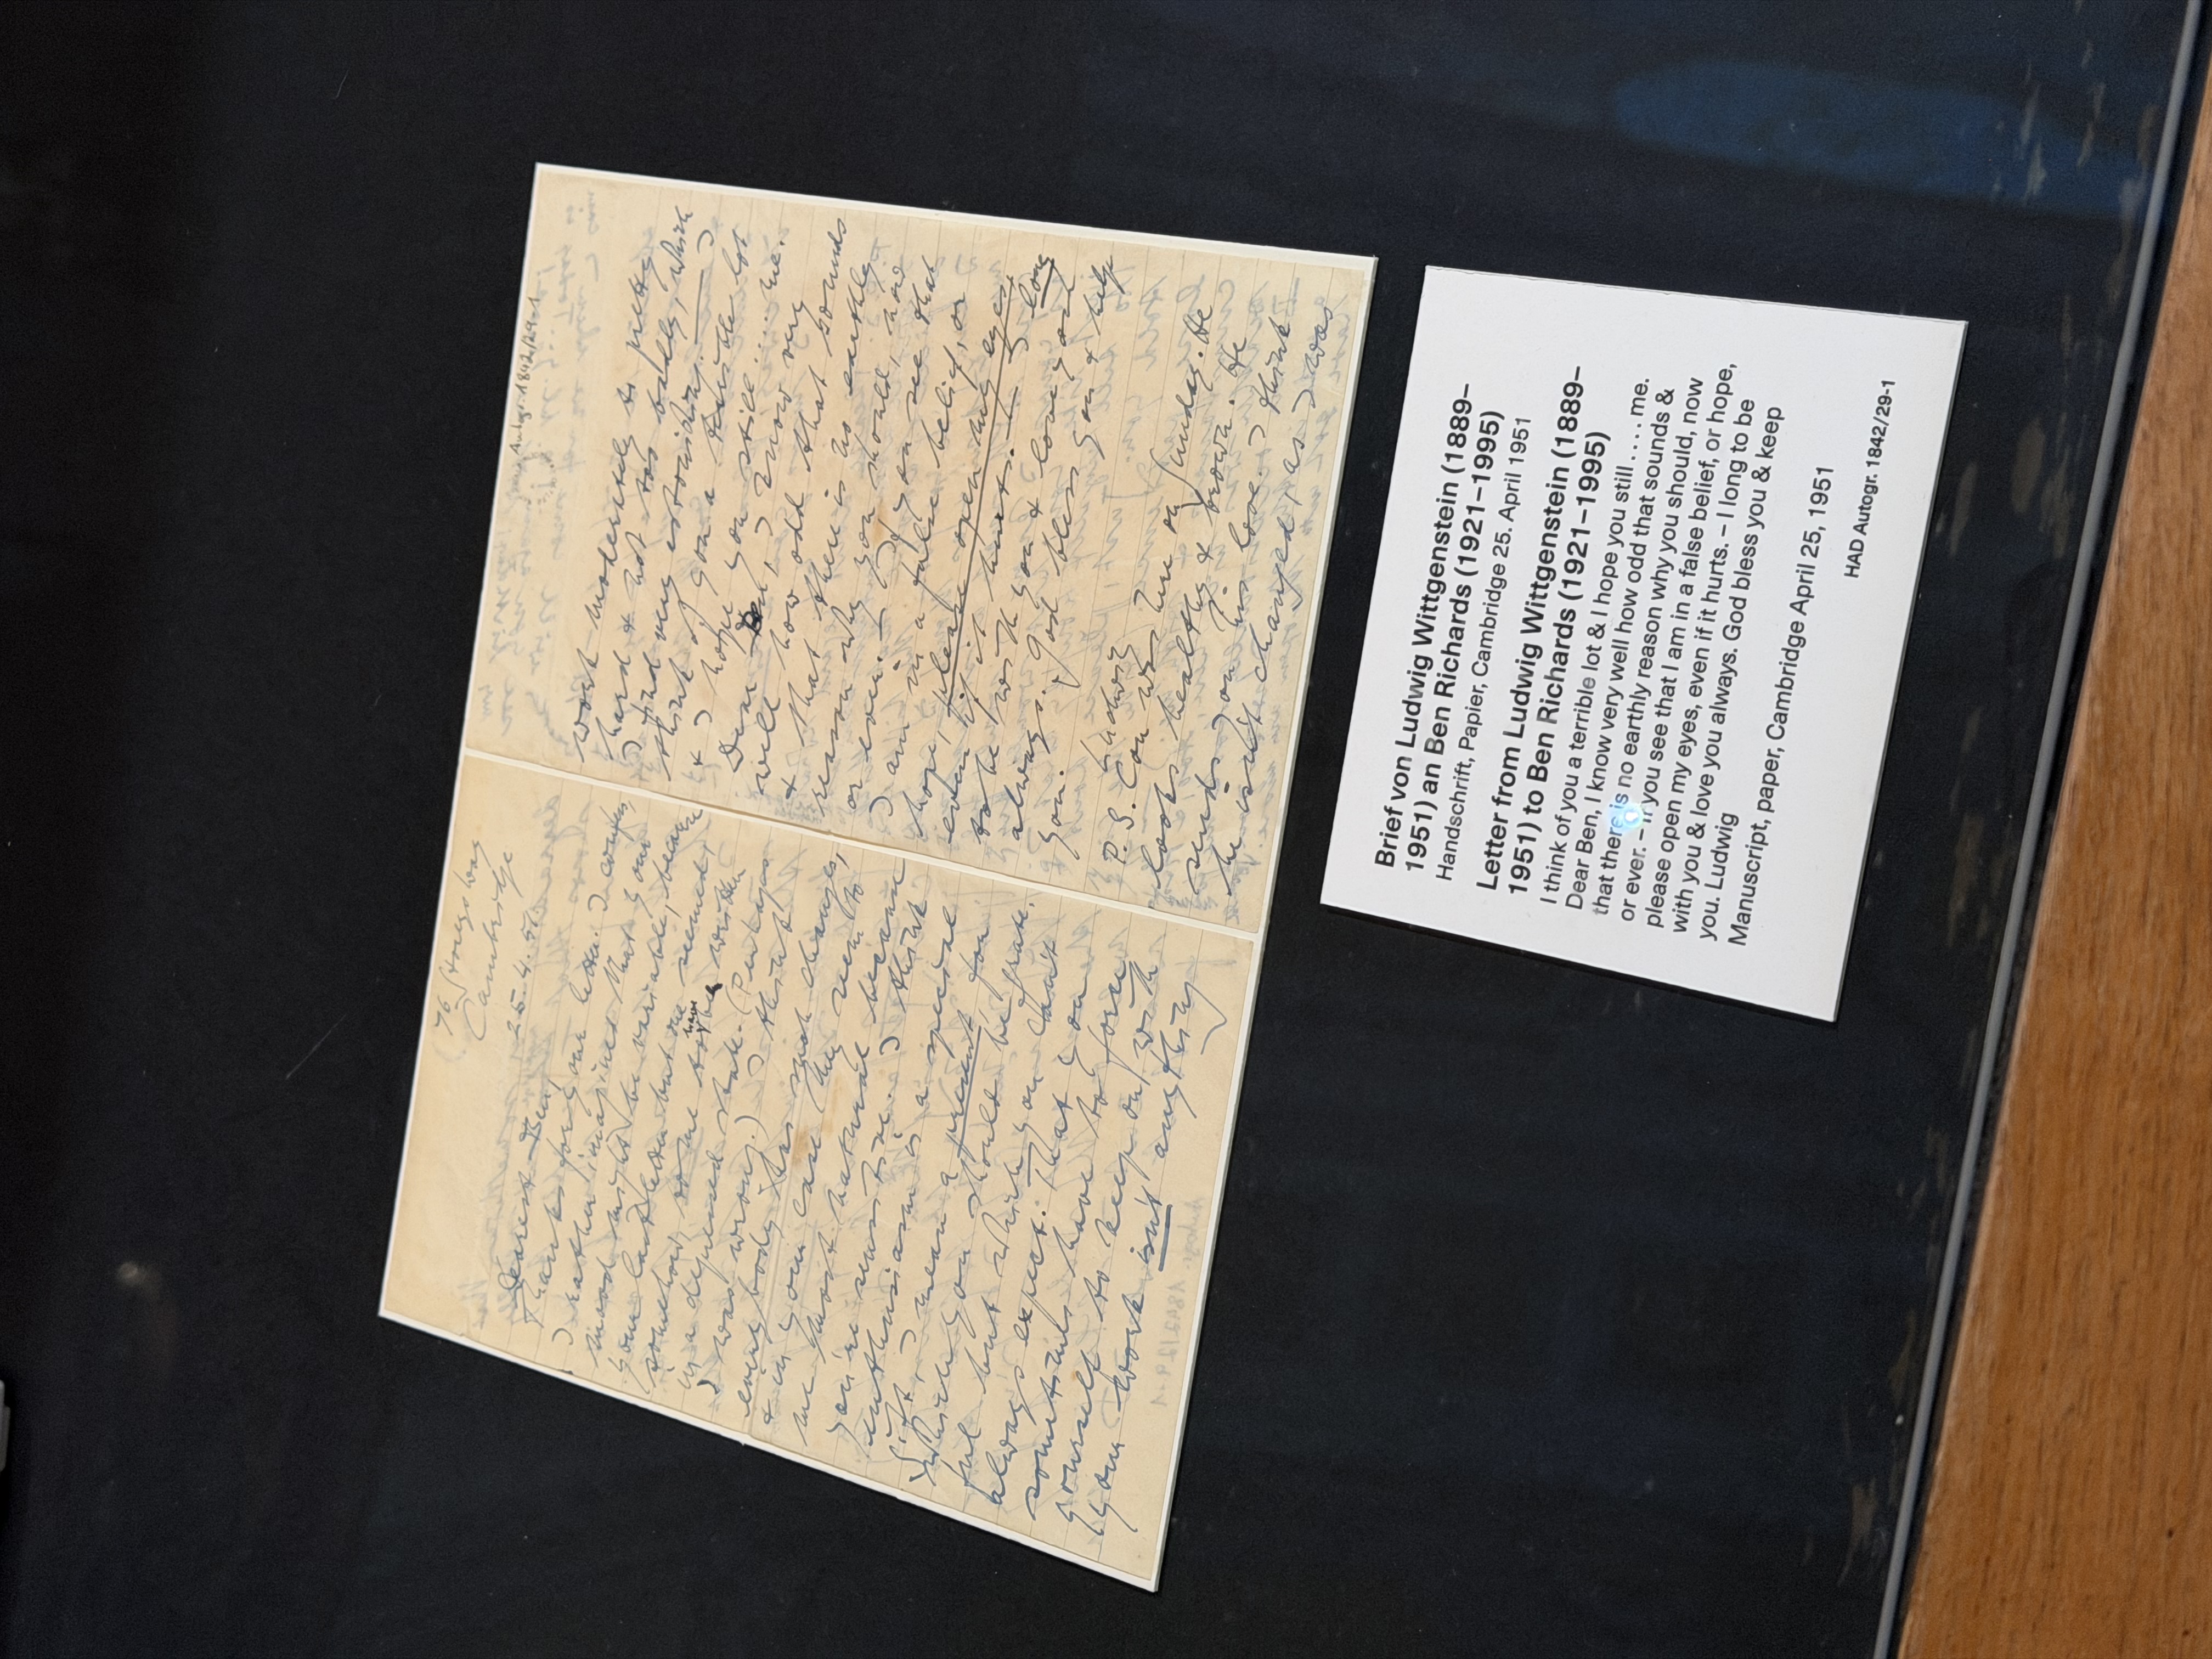 76 Storeys Way
Cambridge
25.4.51
Dearest Ben,
Thanks for your letter. I confess,
I rather imagined that your
mood might be variable, because
your last letter but one seemed,
somehow, to me to have been written
in a depressed state. (Perhaps
I was wrong.) I think
everybody has such changes,
& in your case they seem to
me most natural because
you're sensitive. I think
enthusiasm is a special
gift, I mean a present for
which you should be grate-
ful but which you can't
always expect. That you
sometimes have to force
yourself to keep on with
your work isn't anything
Autogr. 1842/29-1
work moderately to pretty
hard & not too badly, which
I find very astonishing. —
I think of you a terrible lot
& I hope you still ..... me.
Dear Ben, I know very
well how odd that sounds
& that there is no earthly
reason why you should, now
or ever. – If you see that
I am in a false belief, or
hope, please open my eyes,
even if it hurts. – I long
to be with you & love you
always. God bless you & keep
you.
Ludwig
P.S. Con was here on Sunday. He
looks healthy & brown. He
sends you his love. I think
he isn't changed, as I was
Brief von Ludwig Wittgenstein (1889–
1951) an Ben Richards (1921–1995)
Handschrift, Papier, Cambridge 25. April 1951
Letter from Ludwig Wittgenstein (1889–
1951) to Ben Richards (1921–1995)
I think of you a terrible lot & I hope you still .....me.
Dear Ben, I know very well how odd that sounds &
that there is no earthly reason why you should, now
or ever. – If you see that I am in a false belief, or hope,
please open my eyes, even if it hurts. – I long to be
with you & love you always. God bless you & keep
you. Ludwig
Manuscript, paper, Cambridge April 25, 1951
HAD Autogr. 1842/29-1